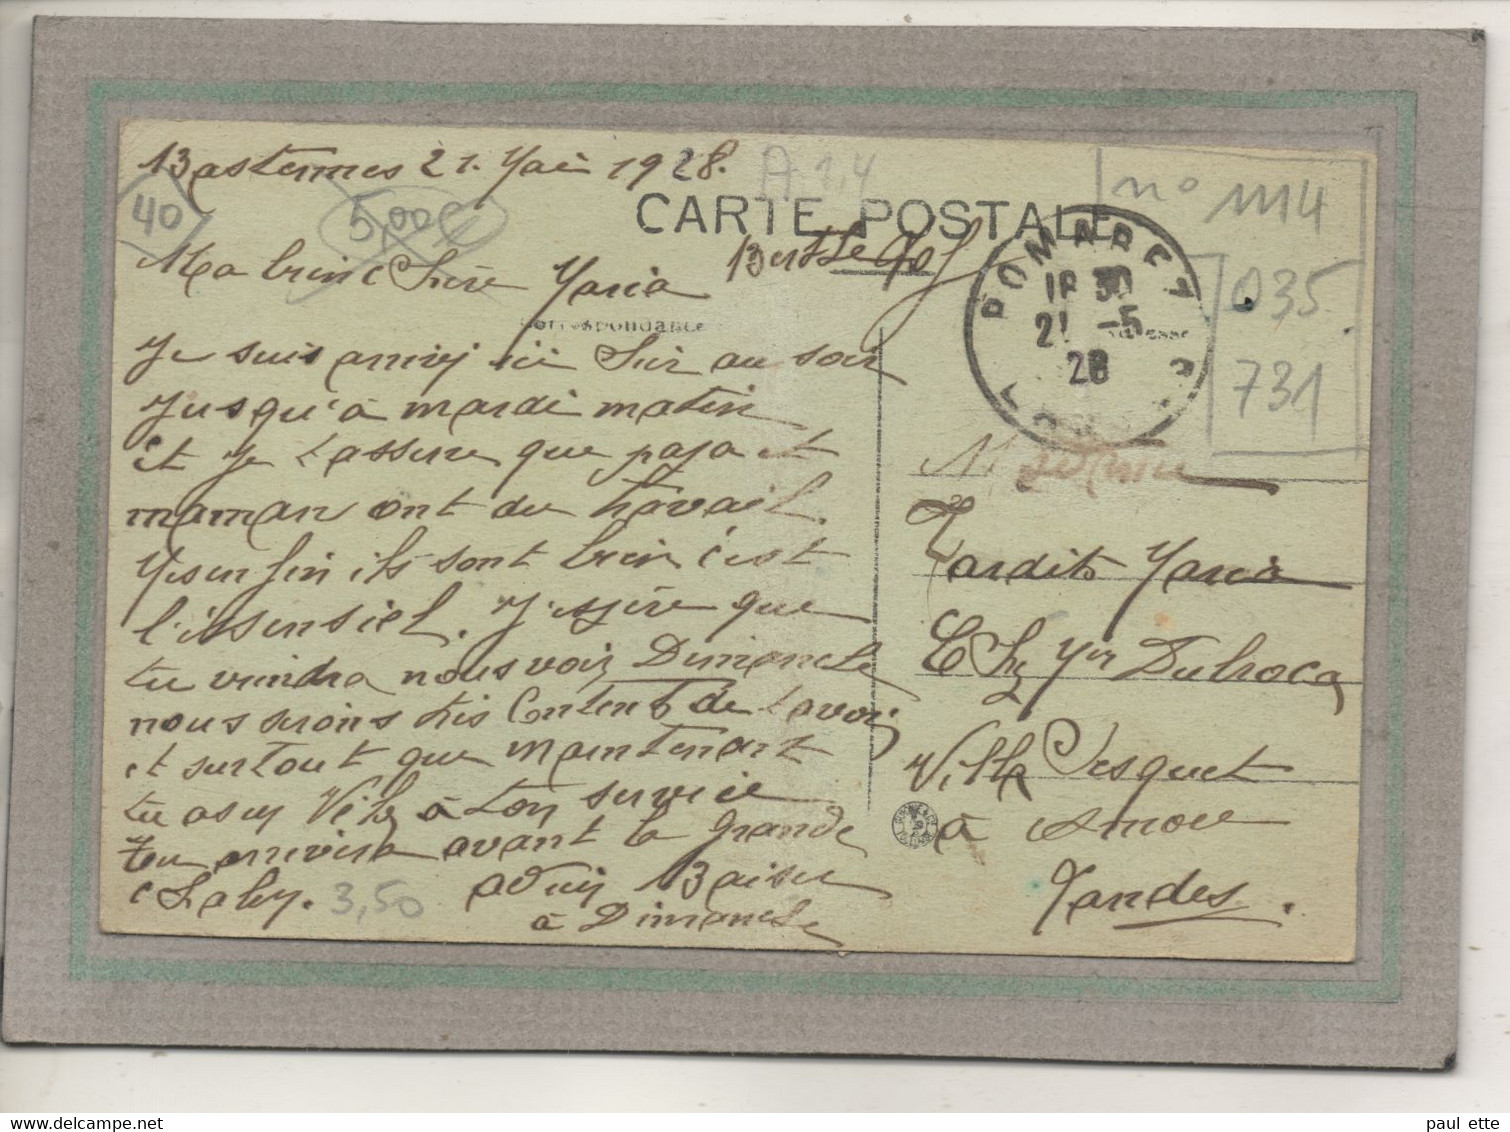 Bastennes 21. Mai 1928.
A.1,4
n° 1114
40
5,00 €
CARTE POSTALE
Ma bien Chère Maria
Correspondance
035
731
POMAREZ
18 30
21 -5
28
Je suis arrivé ici hier au soir
Jusqu'à mardi matin
et Je t'assure que papa et
maman ont du travail.
Mes enfin ils sont bien c'est
l'essensiel. J'espère que
tu viendra nous voir Dimanche
nous serons très Content de tavoir
et surtout que maintenant
tu as un Vélo à ton service
Tu arrivera avant la grande
Chaleur. 3,50 adieu Baiser
à Dimanche
M.
Lardit Maria
Chez Mr Dubrocq
Villa
à Amou
Landes.
paul ette
delcampe.net